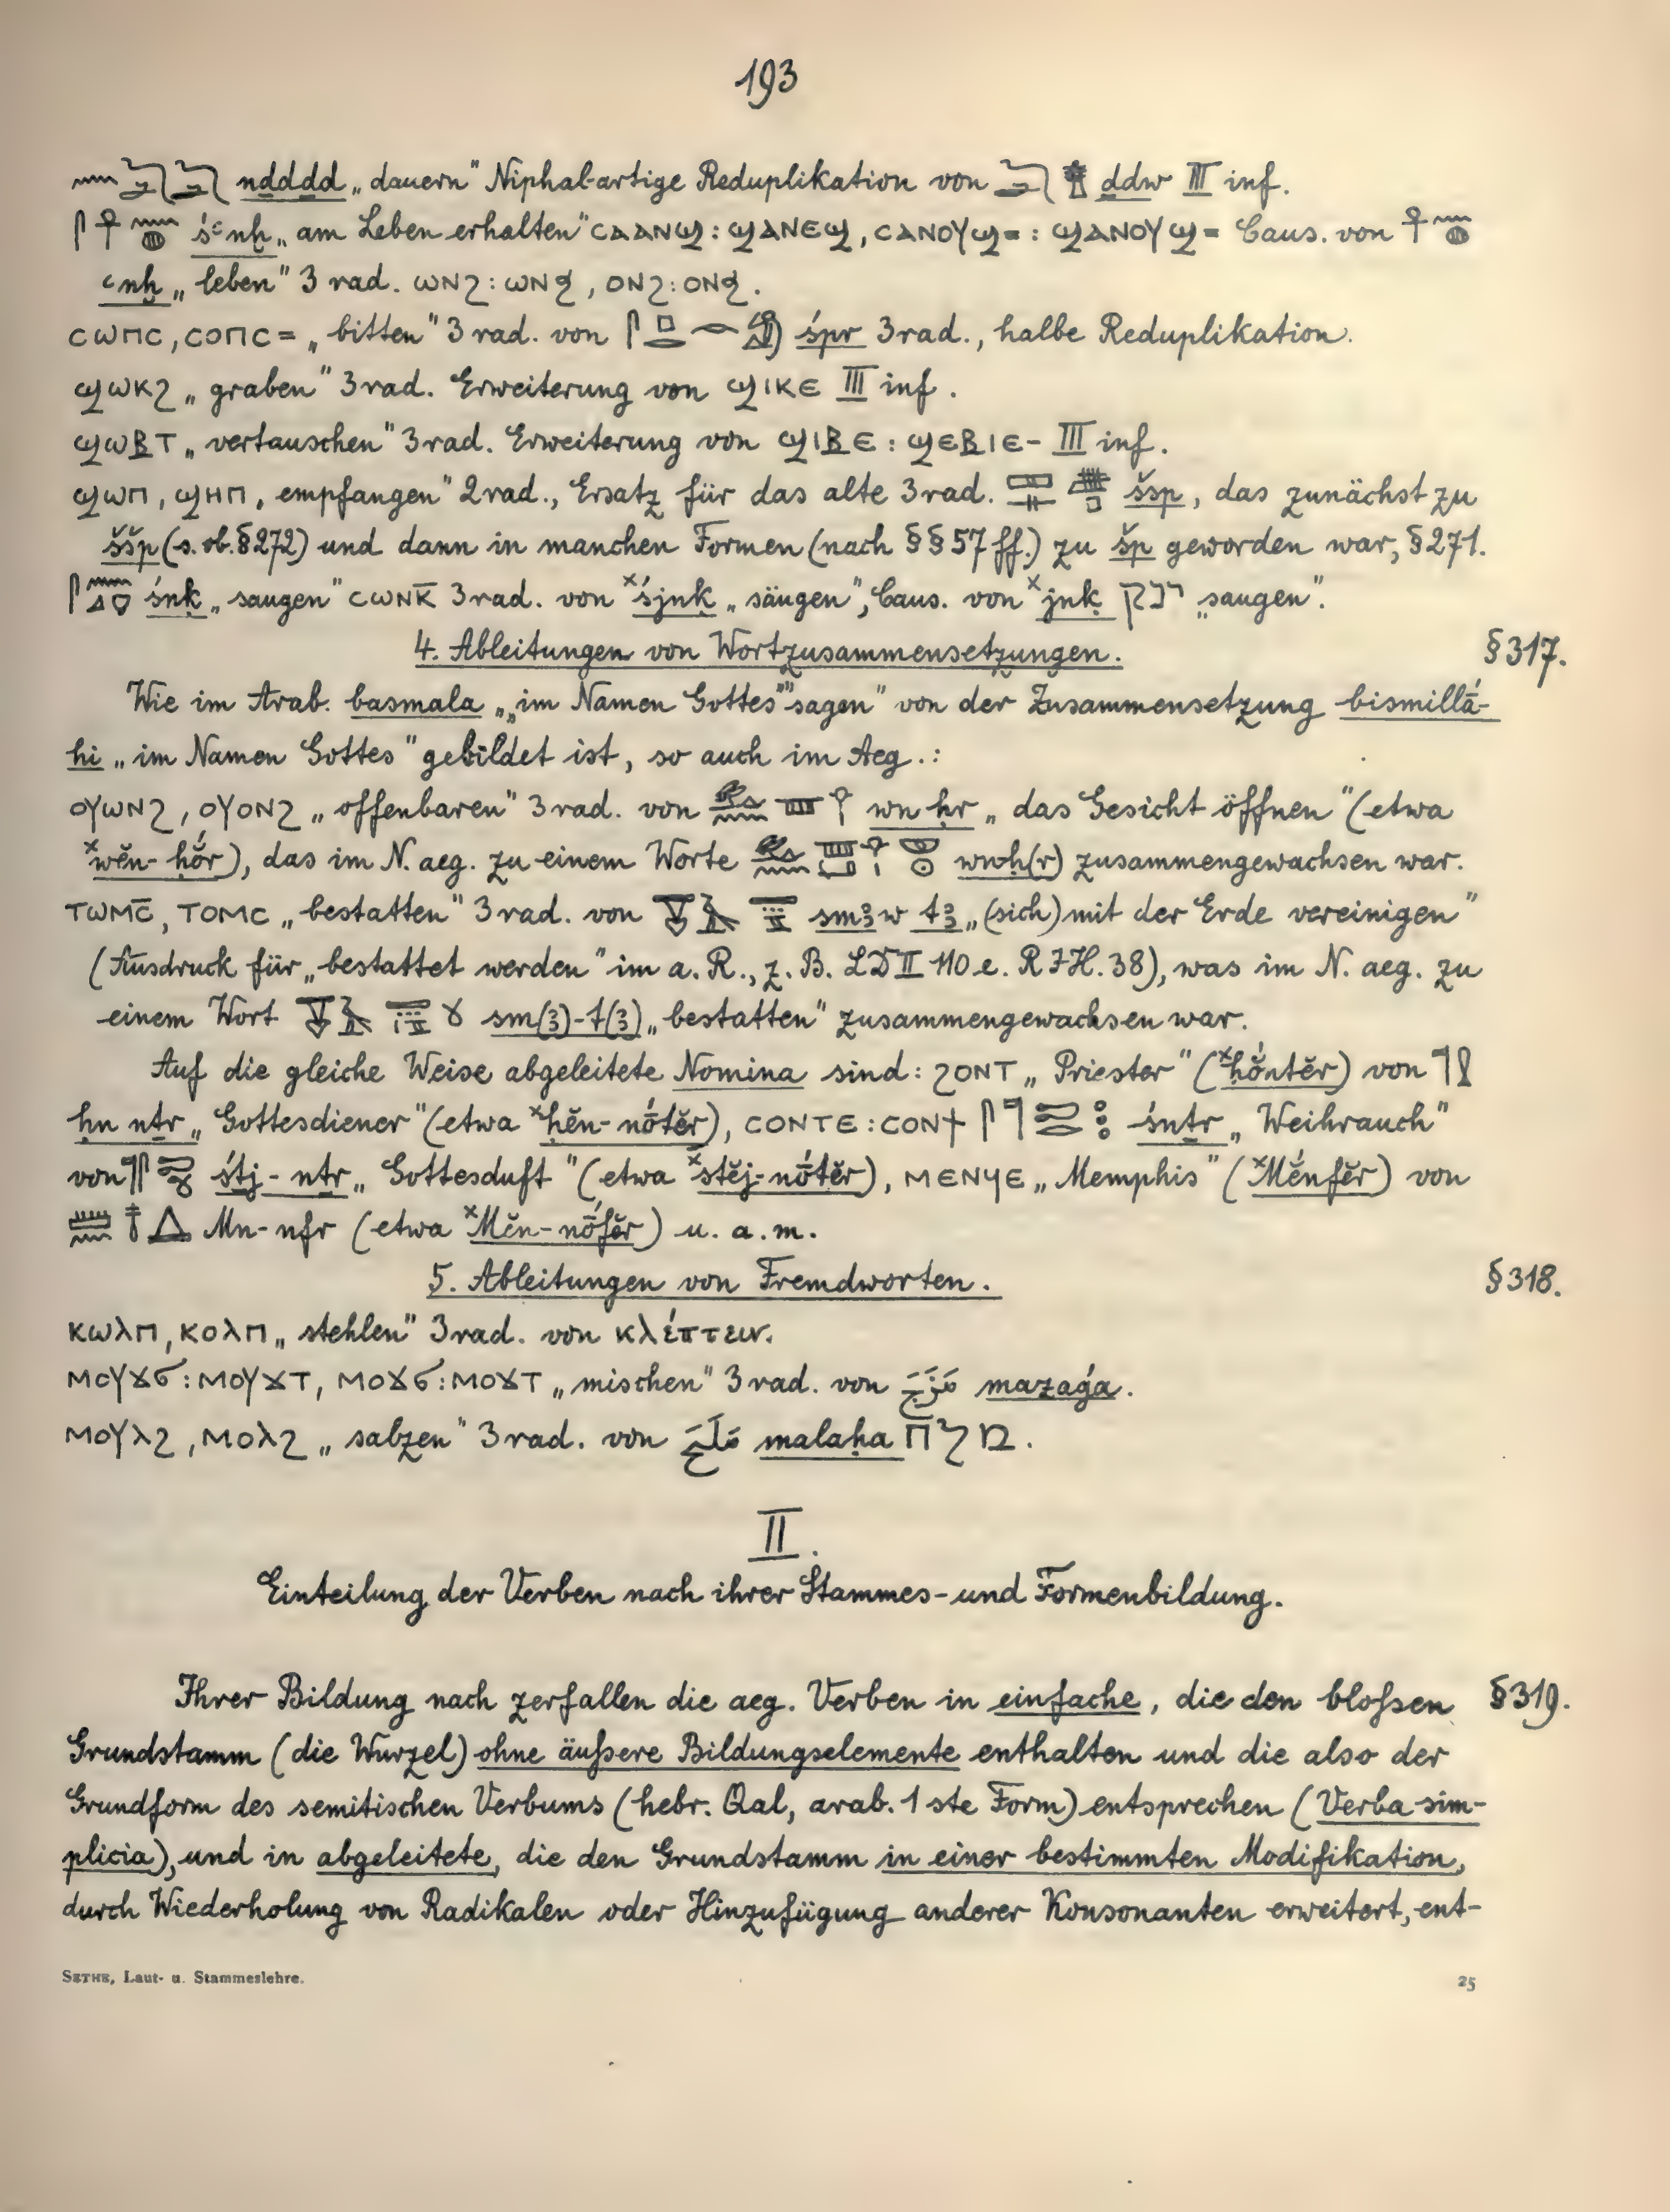 193
𓈖𓆓𓂧𓆓𓂧 nḏdḏd „dauern" Niphal-artige Reduplikation von 𓆓𓂧 ḏdw III inf.
𓋴𓋹𓈖𓐍 śꜥnḫ „am Leben erhalten" ⲤⲀⲀⲚϢ : ϢⲀⲚⲈϢ, ⲤⲀⲚⲞⲨϢ= : ϢⲀⲚⲞⲨϢ= Caus. von 𓋹𓈖𓐍
ꜥnḫ „leben" 3 rad. ⲰⲚϨ : ⲰⲚϦ, ⲞⲚϨ : ⲞⲚϦ.
ⲤⲰⲠⲤ, ⲤⲞⲠⲤ= „bitten" 3 rad. von 𓋴𓊪𓂋𓀁 śpr 3 rad., halbe Reduplikation.
ϢⲰⲔϨ „graben" 3 rad. Erweiterung von ϢⲒⲔⲈ III inf.
ϢⲰⲂⲦ „vertauschen" 3 rad. Erweiterung von ϢⲒⲂⲈ : ϢⲈⲂⲒⲈ- III inf.
ϢⲰⲠ, ϢⲎⲠ „empfangen" 2 rad., Ersatz für das alte 3 rad. šsp, das zunächst zu
ššp (s. ob. § 272) und dann in manchen Formen (nach §§ 57 ff.) zu šp geworden war, § 271.
𓋴𓈖𓈎 śnḳ „saugen" ⲤⲰⲚⲔ̅ 3 rad. von ˣśjnḳ „säugen", Caus. von ˣjnḳ ינק „saugen".
4. Ableitungen von Wortzusammensetzungen. § 317.
Wie im Arab. basmala „„im Namen Gottes"" sagen" von der Zusammensetzung bismillā-
hi „im Namen Gottes" gebildet ist, so auch im Aeg.:
ⲞⲨⲰⲚϨ, ⲞⲨⲞⲚϨ „offenbaren" 3 rad. von wn ḥr „das Gesicht öffnen" (etwa
ˣwĕn-ḥŏ́r), das im N. aeg. zu einem Worte wnḥ(r) zusammengewachsen war.
ⲦⲰⲘⲤ̅, ⲦⲞⲘⲤ „bestatten" 3 rad. von smꜣw tꜣ „(sich) mit der Erde vereinigen"
(Ausdruck für „bestattet werden" im a. R., z. B. LD II 110 e. RIH. 38), was im N. aeg. zu
einem Wort sm(ꜣ)-t(ꜣ) „bestatten" zusammengewachsen war.
Auf die gleiche Weise abgeleitete Nomina sind: ϨⲞⲚⲦ „Priester" (ˣḥŏ́nṯĕr) von 𓊹𓍛
ḥn nṯr „Gottesdiener" (etwa ˣḥĕn-nṓṯĕr), ⲤⲞⲚⲦⲈ : ⲤⲞⲚϮ śnṯr „Weihrauch"
von śṯj-nṯr „Gottesduft" (etwa ˣsṯĕj-nṓṯĕr), ⲘⲈⲚϤⲈ „Memphis" (ˣMĕ́nfĕr) von
Mn-nfr (etwa ˣMĕn-nṓfĕr) u. a. m.
5. Ableitungen von Fremdworten. § 318.
ⲔⲰⲖⲠ, ⲔⲞⲖⲠ „stehlen" 3 rad. von κλέπτειν.
ⲘⲞⲨϪϬ : ⲘⲞⲨϪⲦ, ⲘⲞϪϬ : ⲘⲞϪⲦ „mischen" 3 rad. von مَزَجَ mazaǵa.
ⲘⲞⲨⲖϨ, ⲘⲞⲖϨ „salzen" 3 rad. von مَلَحَ malaḥa מלח.
II.
Einteilung der Verben nach ihrer Stammes- und Formenbildung.
Ihrer Bildung nach zerfallen die aeg. Verben in einfache, die den bloßen § 319.
Grundstamm (die Wurzel) ohne äußere Bildungselemente enthalten und die also der
Grundform des semitischen Verbums (hebr. Qal, arab. 1 ste Form) entsprechen (Verba sim-
plicia), und in abgeleitete, die den Grundstamm in einer bestimmten Modifikation,
durch Wiederholung von Radikalen oder Hinzufügung anderer Konsonanten erweitert, ent-
SETHE, Laut- u. Stammeslehre. 25